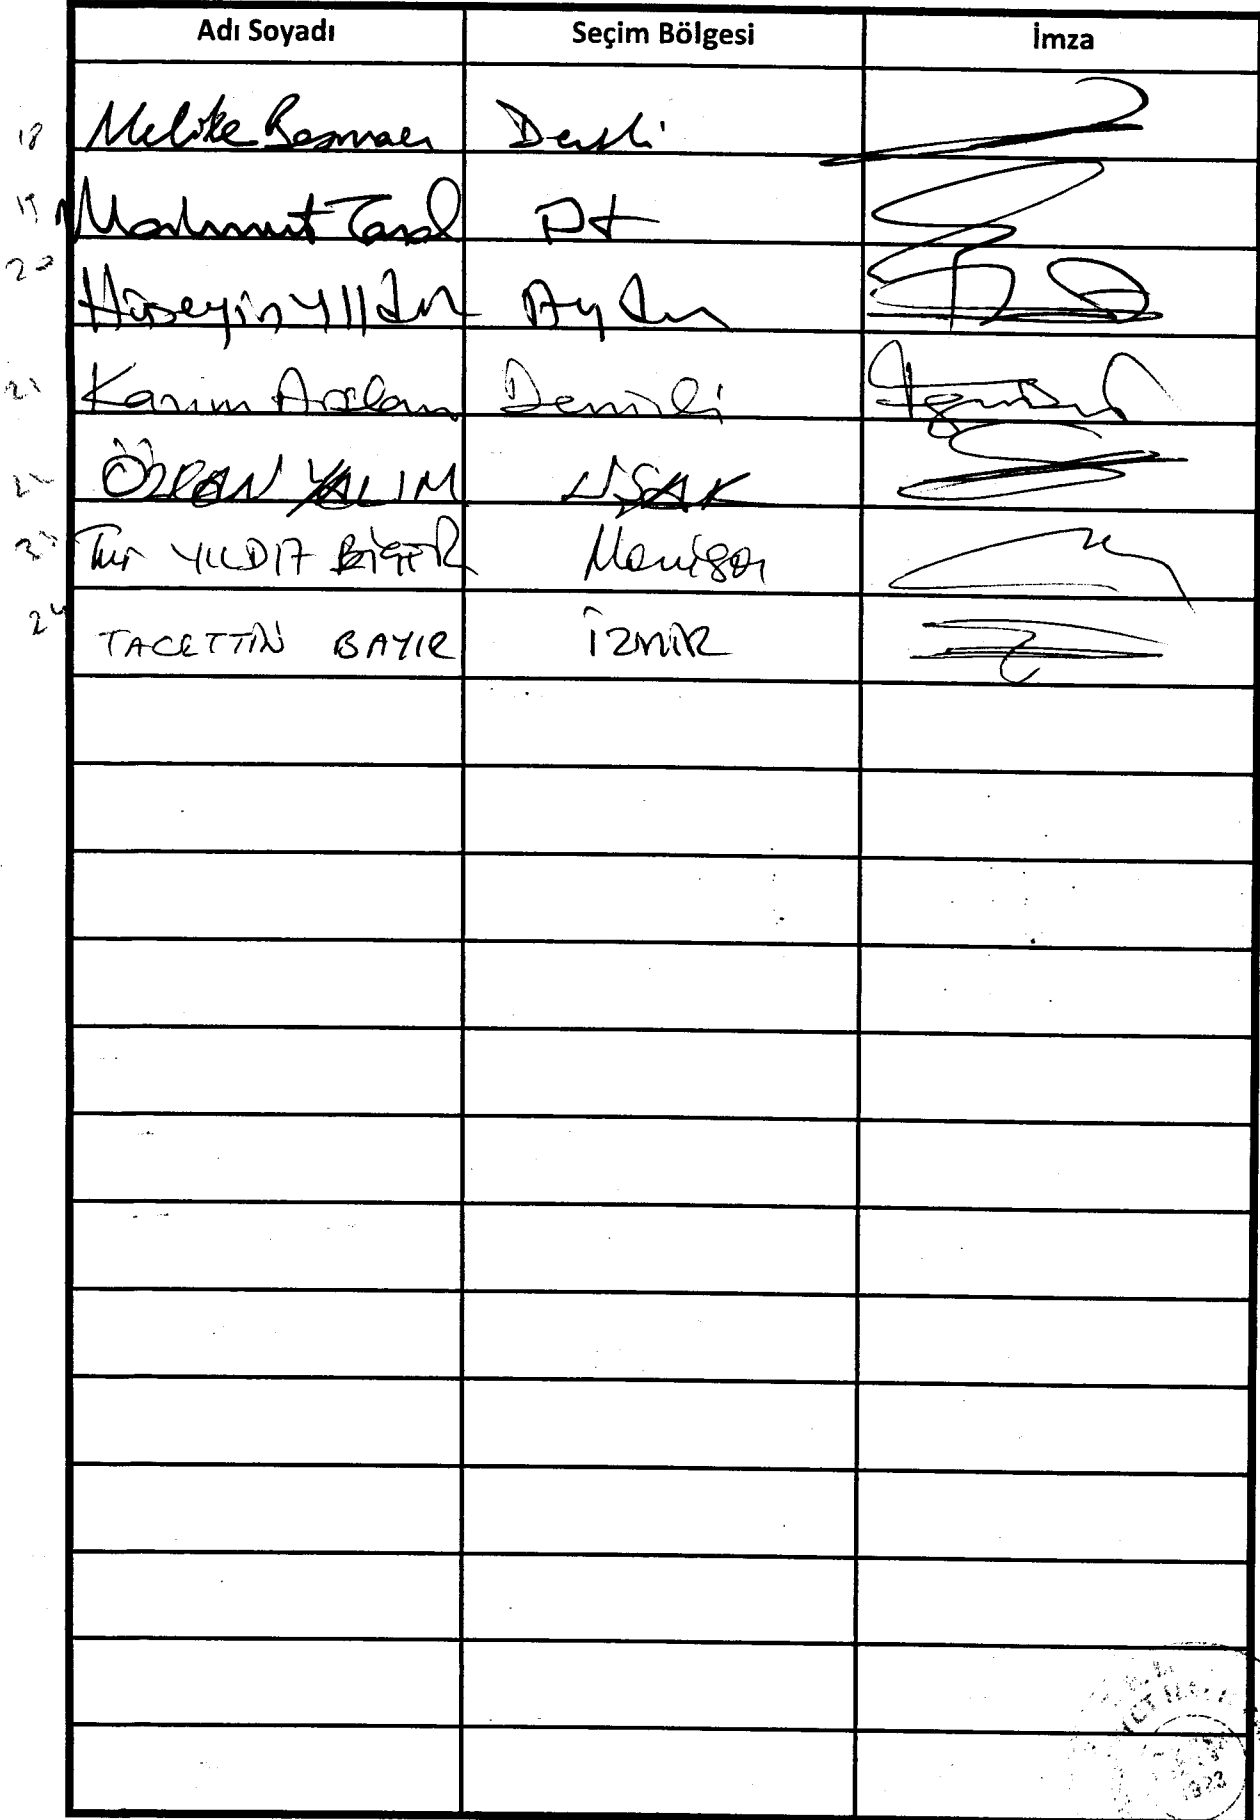 Adı Soyadı Seçim Bölgesi İmza
18 Melike Basmacı Denizli
19 Mahmut Tanal İst
20 Hüseyin Yıldız Aydın
21 Kazım Arslan Denizli
22 ÖZKAN YALIM UŞAK
23 Tur YILDIZ BİÇER Manisa
24 TACETTİN BAYIR İZMİR
1923